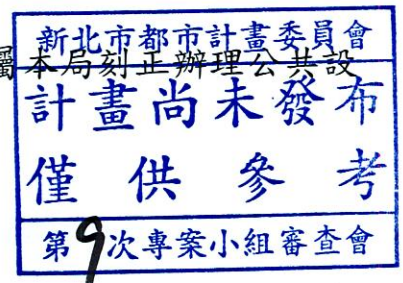 新北市都市計畫委員會
屬本局刻正辦理公共設
計畫尚未發布
僅供參考
第9次專案小組審查會